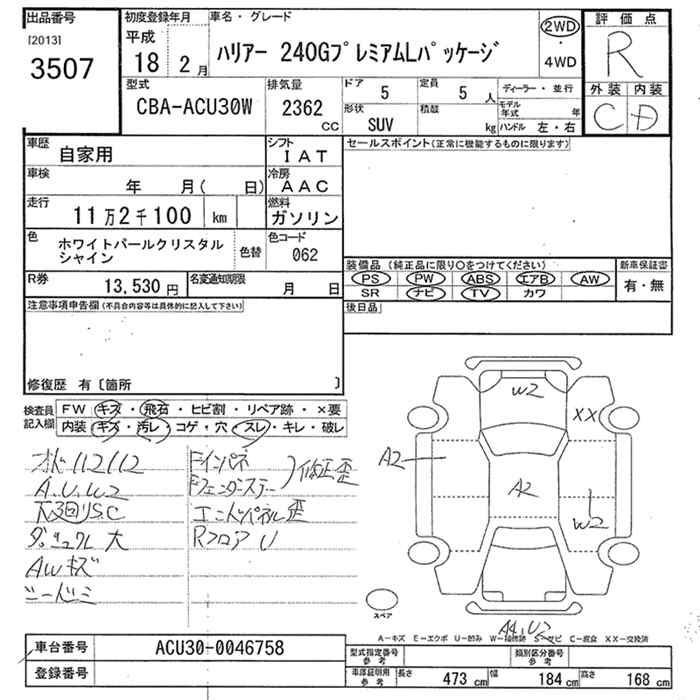 出品番号
[2013]
3507
初度登録年月
平成
18 2月
車名・グレード
ハリアー 240GプレミアムLパッケージ
2WD
・
4WD
評価点
R
外装 内装
C D
型式
CBA-ACU30W
排気量
2362
cc
ドア
5
定員
5 人
形状
SUV
積載
kg
ディーラー・並行
モデル年式 年
ハンドル 左・右
車歴
自家用
シフト
IAT
車検
年 月( 日)
冷房
AAC
走行
11万2千100 km
燃料
ガソリン
色
ホワイトパールクリスタル
シャイン
色替
色コード
062
R券
13,530 円
名変通知期限
月 日
セールスポイント(正常に機能するものに限ります)
装備品 (純正品に限り○をつけてください)
PS PW ABS エアB AW
SR ナビ TV カワ
新車保証書
有・無
後日品
注意事項申告欄(不具合内容等は具体的に記入して下さい)
修復歴 有〔箇所 〕
検査員
記入欄
FW キズ・飛石・ヒビ割・リペア跡・×要
内装 キズ・汚レ・コゲ・穴・スレ・キレ・破レ
A.U.W2
下廻りS.C
ダッシュクル 大
AWキズ
Fインパネ
修正歪
エンドパネル歪
Rフロア U
W2
XX
A2
A2
W2
スペア
A4,U2
A-キズ E-エクボ U-凹み W-補修跡 S-サビ C-腐食 XX-交換済
車台番号
ACU30-0046758
登録番号
型式指定番号
参考
類別区分番号
参考
車庫証明用
参考
長さ 473 cm
幅 184 cm
高さ 168 cm